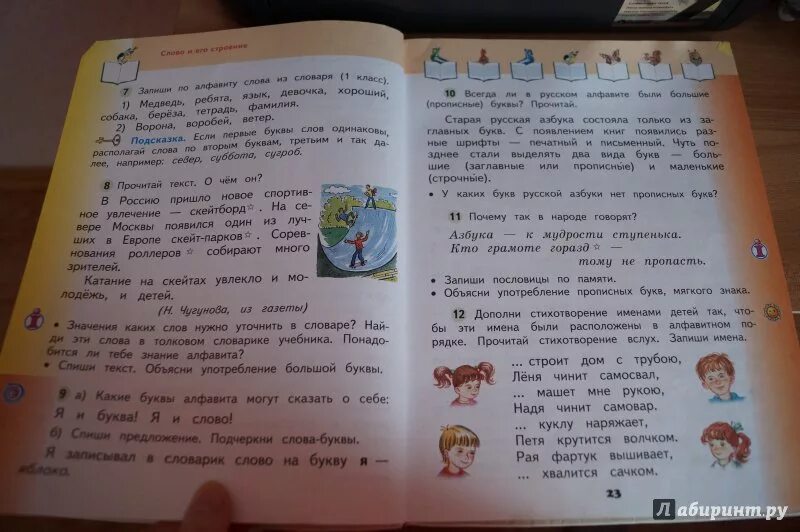 Слово и его строение
7 Запиши по алфавиту слова из словаря (1 класс).
1) Медведь, ребята, язык, девочка, хороший,
собака, берёза, тетрадь, фамилия.
2) Ворона, воробей, ветер.
Подсказка. Если первые буквы слов одинаковы,
располагай слова по вторым буквам, третьим и так да-
лее, например: север, суббота, сугроб.
8 Прочитай текст. О чём он?
В Россию пришло новое спортив-
ное увлечение — скейтборд☆. На се-
вере Москвы появился один из луч-
ших в Европе скейт-парков☆. Сорев-
нования роллеров☆ собирают много
зрителей.
Катание на скейтах увлекло и мо-
лодёжь, и детей.
(Н. Чугунова, из газеты)
• Значения каких слов нужно уточнить в словаре? Най-
ди эти слова в толковом словарике учебника. Понадо-
бится ли тебе знание алфавита?
• Спиши текст. Объясни употребление большой буквы.
9 а) Какие буквы алфавита могут сказать о себе:
Я и буква! Я и слово!
б) Спиши предложение. Подчеркни слова-буквы.
Я записывал в словарик слово на букву я —
яблоко.
10 Всегда ли в русском алфавите были большие
(прописные) буквы? Прочитай.
Старая русская азбука состояла только из за-
главных букв. С появлением книг появились раз-
ные шрифты — печатный и письменный. Чуть по-
зднее стали выделять два вида букв — боль-
шие (заглавные или прописные) и маленькие
(строчные).
• У каких букв русской азбуки нет прописных букв?
11 Почему так в народе говорят?
Азбука — к мудрости ступенька.
Кто грамоте горазд☆ —
тому не пропасть.
• Запиши пословицы по памяти.
• Объясни употребление прописных букв, мягкого знака.
12 Дополни стихотворение именами детей так, что-
бы эти имена были расположены в алфавитном по-
рядке. Прочитай стихотворение вслух. Запиши имена.
... строит дом с трубою,
Лёня чинит самосвал,
... машет мне рукою,
Надя чинит самовар.
... куклу наряжает,
Петя крутится волчком.
Рая фартук вышивает,
... хвалится сачком.
23
Лабиринт.ру